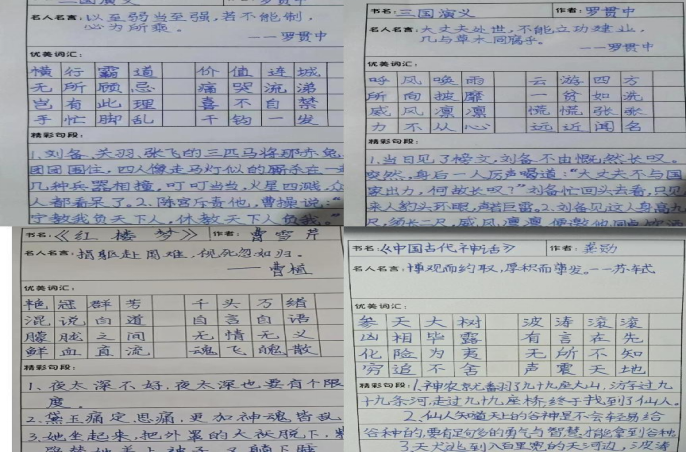 三国演义
名人名言：以至弱当至强，若不能制，
必为所乘。
——罗贯中
优美词汇：
横行霸道 价值连城
无所顾忌 痛哭流涕
岂有此理 喜不自禁
手忙脚乱 千钧一发
精彩句段：
1、刘备、关羽、张飞的三匹马将那赤兔
团团围住，四人像走马灯似的厮杀在一
几种兵器相撞，叮叮当当，火星四溅，众
人都看呆了。2、陈宫斥责他，曹操说：“
宁教我负天下人，休教天下人负我。”
书名：三国演义 作者：罗贯中
名人名言：大丈夫处世，不能立功建业，
几与草木同腐乎。
——罗贯中
优美词汇：
呼风唤雨 云游四方
所向披靡 一贫如洗
威风凛凛 慌慌张张
力不从心 远近闻名
精彩句段：
1、当日见了榜文，刘备不由慨然长叹。
突然，身后一人厉声喝道：“大丈夫不与国
家出力，何故长叹？”刘备忙回头去看，只见
来人豹头环眼，声若巨雷。2、刘备见这人身高九
尺，须长二尺，威风凛凛，便邀他同
书名：《红楼梦》 作者：曹雪芹
名人名言：捐躯赴国难，视死忽如归。
——曹植
优美词汇：
艳冠群芳 千头万绪
混说白道 自言自语
朦胧之间 无情无义
鲜血直流 魂飞魄散
精彩句段：
1、夜太深不好，夜太深也要有个限
度。
2、黛玉痛定思痛，更加神魂皆
3、她坐起来，把外罩的大袄脱下，紫
躺下睡
书名：《中国古代神话》 作者：
名人名言：博观而约取，厚积而薄发。——苏轼
优美词汇：
参天大树 波涛滚滚
凶相毕露 有言在先
化险为夷 无所不知
穷追不舍 声震天地
精彩句段：1、神农氏翻了九十九座大山，涉过九
十九条河，走过九十九座桥，终于找到了仙人。
2、仙人知道天上的谷神是不会轻易给
谷种的，要有足够多的勇气与智慧，才能拿到谷种。
3、天犬逃到八百里宽的天河边，波涛